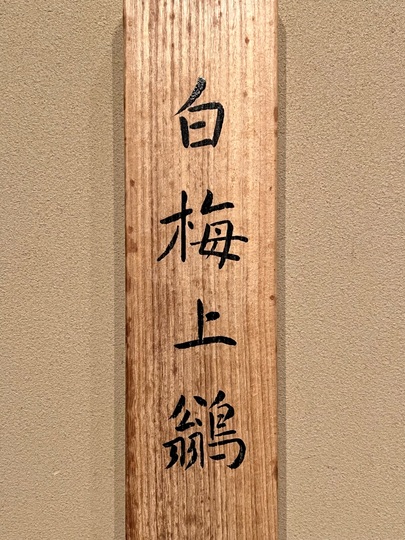 白梅上鶲